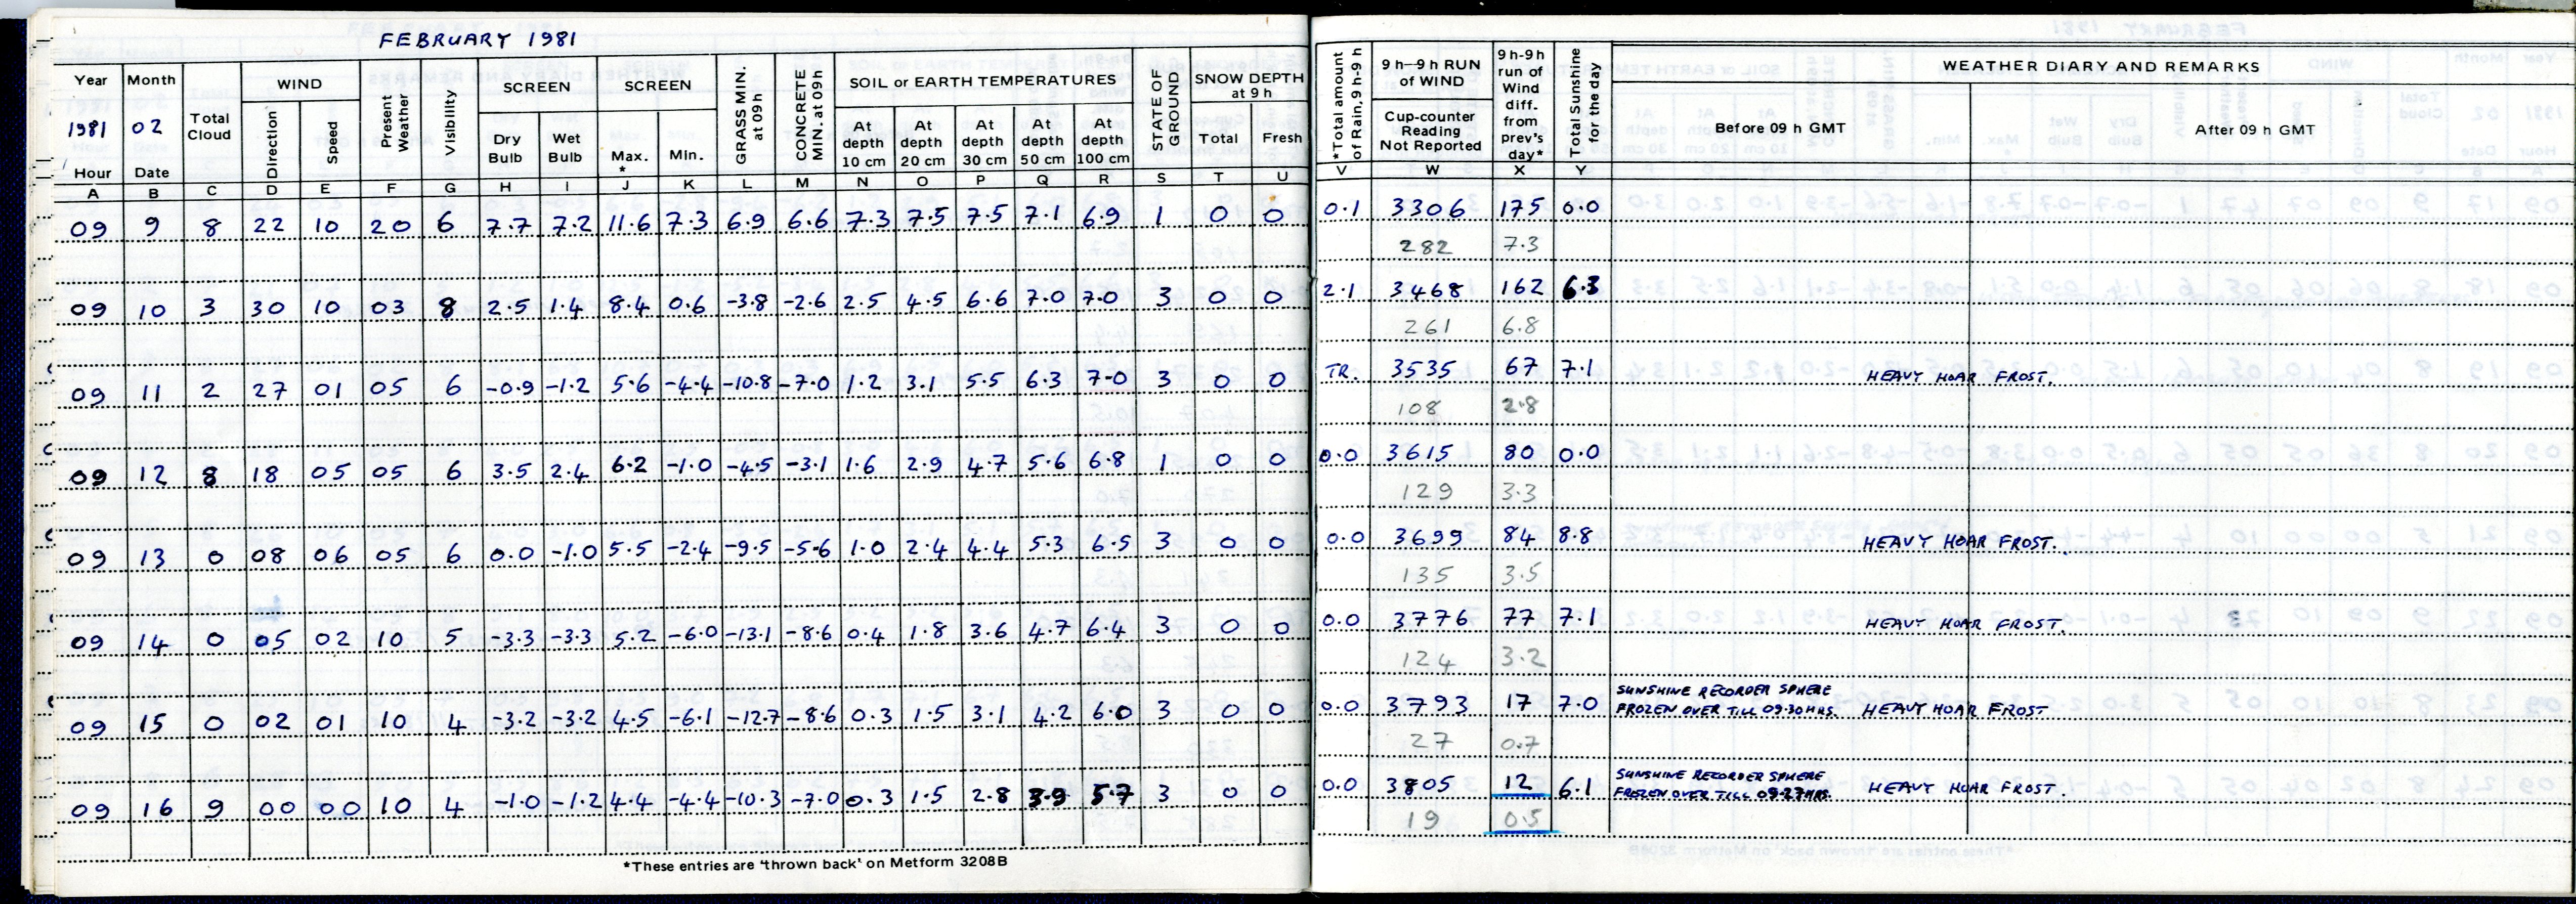 FEBRUARY 1981
Year Month Total Cloud WIND Present Weather Visibility SCREEN SCREEN GRASS MIN. at 09 h CONCRETE MIN. at 09h SOIL or EARTH TEMPERATURES STATE OF GROUND SNOW DEPTH at 9 h *Total amount of Rain, 9h-9h 9 h–9 h RUN of WIND 9 h-9 h run of Wind diff. from prev's day* Total Sunshine for the day WEATHER DIARY AND REMARKS
1981 02 Direction Speed Dry Bulb Wet Bulb Max. * Min. At depth 10 cm At depth 20 cm At depth 30 cm At depth 50 cm At depth 100 cm Total Fresh Cup-counter Reading Not Reported Before 09 h GMT After 09 h GMT
Hour Date
A B C D E F G H I J K L M N O P Q R S T U V W X Y
09 9 8 22 10 20 6 7.7 7.2 11.6 7.3 6.9 6.6 7.3 7.5 7.5 7.1 6.9 1 0 0 0.1 3306 175 0.0
282 7.3
09 10 3 30 10 03 8 2.5 1.4 8.4 0.6 -3.8 -2.6 2.5 4.5 6.6 7.0 7.0 3 0 0 2.1 3468 162 6.3
261 6.8
09 11 2 27 01 05 6 -0.9 -1.2 5.6 -4.4 -10.8 -7.0 1.2 3.1 5.5 6.3 7-0 3 0 0 TR. 3535 67 7.1 HEAVY HOAR FROST.
108 2.8
09 12 8 18 05 05 6 3.5 2.4 6.2 -1.0 -4.5 -3.1 1.6 2.9 4.7 5.6 6.8 1 0 0 0.0 3615 80 0.0
129 3.3
09 13 0 08 06 05 6 0.0 -1.0 5.5 -2.4 -9.5 -5-6 1.0 2.4 4.4 5.3 6.5 3 0 0 0.0 3699 84 8.8 HEAVY HOAR FROST.
135 3.5
09 14 0 05 02 10 5 -3.3 -3.3 5.2 -6.0 -13.1 -8.6 0.4 1.8 3.6 4.7 6.4 3 0 0 0.0 3776 77 7.1 HEAVY HOAR FROST.
124 3.2
SUNSHINE RECORDER SPHERE
09 15 0 02 01 10 4 -3.2 -3.2 4.5 -6.1 -12.7 -8.6 0.3 1.5 3.1 4.2 6.0 3 0 0 0.0 3793 17 7.0 FROZEN OVER TILL 09.30HRS. HEAVY HOAR FROST
27 0.7
SUNSHINE RECORDER SPHERE
09 16 9 00 00 10 4 -1.0 -1.2 4.4 -4.4 -10.3 -7.0 0.3 1.5 2.8 3.9 5.7 3 0 0 0.0 3805 12 6.1 FROZEN OVER TILL 09.27HRS. HEAVY HOAR FROST.
19 0.5
*These entries are 'thrown back' on Metform 3208B